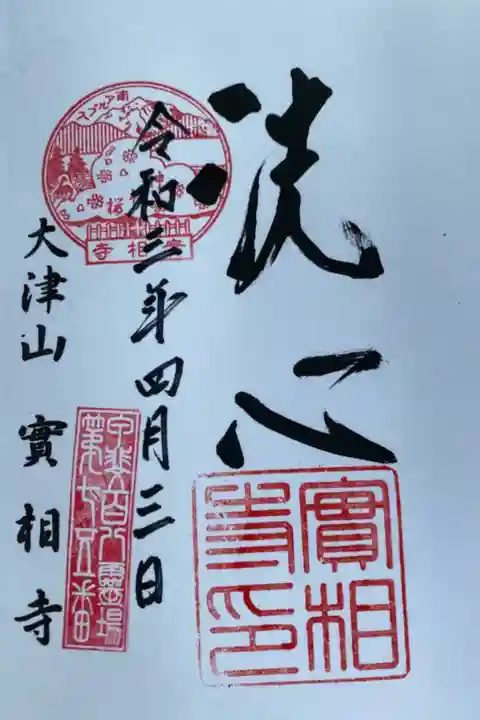 洗心
實相
寺印
令和三年四月三日
南アルプス
神
桜
實相寺
甲斐百八霊場
第七五番
大津山 實相寺